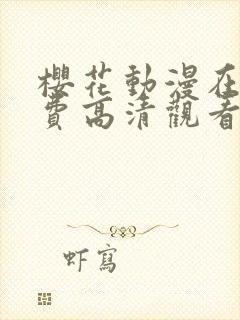 櫻花動漫在
費高清觀看
虾寫